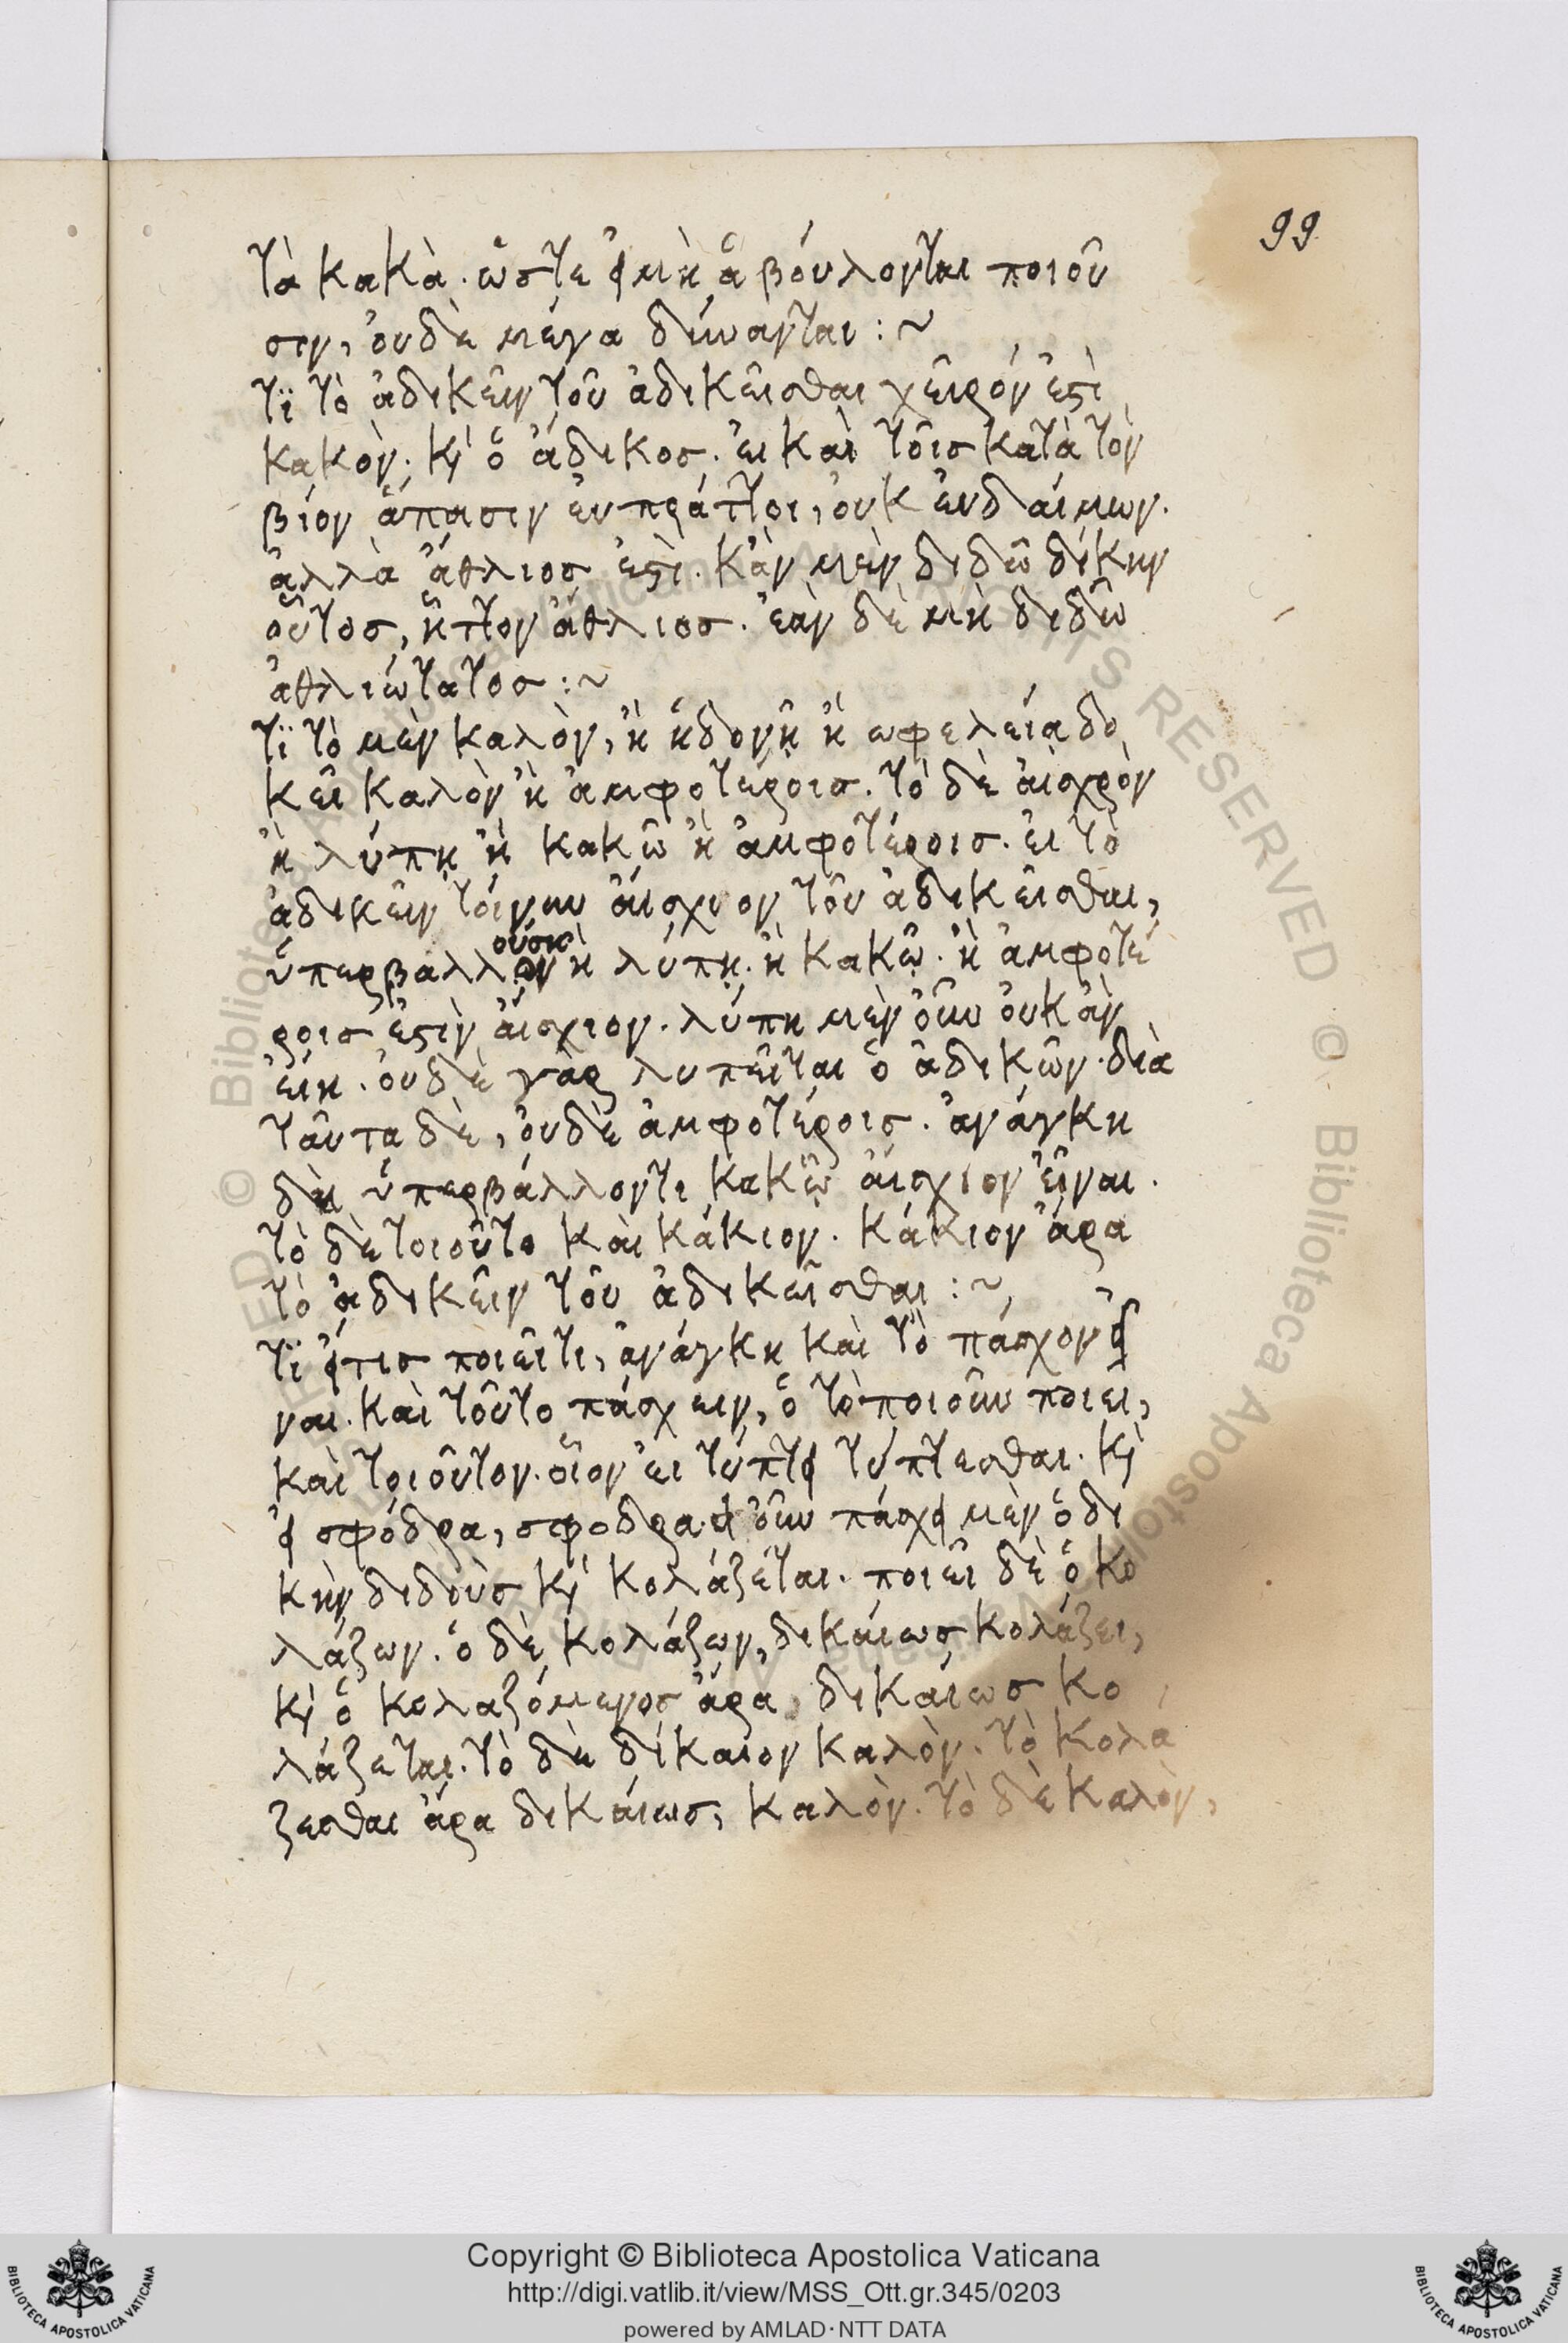 99
τὰ κακὰ. ὥστε εἰ μὴ ἃ βούλονται ποιοῦ
σιν, οὐδὲ μέγα δύνανται :~
τϊ τὸ ἀδικεῖν τοῦ ἀδικεῖσθαι χεῖρόν ἐστὶ
κακὸν. καὶ ὁ ἄδικος. εἰ καὶ τοῖς κατὰ τὸν
βίον ἅπασιν εὐπράττοι, οὐκ εὐδαίμων.
ἀλλὰ ἄθλιος ἐστὶ. κἂν μὲν διδῶ δίκην
οὗτος, ἧττον ἄθλιος. ἐὰν δὲ μὴ διδῶ
ἀθλιώτατος :~
τϊ τὸ μὲν καλὸν, ἢ ἡδονῆ ἢ ωφελεία δο
κεῖ καλὸν ἢ ἀμφοτέροις. τὸ δὲ αἰσχρὸν
ἢ λύπη ἢ κακῶ ἢ ἀμφοτέροις. εἰ τὸ
ἀδικεῖν τοίνυν αἴσχιον τοῦ ἀδικεῖσθαι,
ὑπερβαλλον ἢ λύπη. ἢ κακῶ. ἢ ἀμφοτέ
ούση
ροις ἐστὶν αἴσχιον. λύπη μὲν οὖν οὐκ ἂν
εἴη. οὐδὲ γὰρ λυπεῖται ὁ ἀδικῶν. διὰ
ταῦτα δὲ, οὐδὲ ἀμφοτέροις. ἀνάγκη
δὴ ὑπερβάλλοντι κακῶ αἴσχιον εἶναι.
τὸ δὲ τοιοῦτο καὶ κάκιον. κάκιον ἄρα
τὸ ἀδικεῖν τοῦ ἀδικεῖσθαι :~
τϊ εἴ τις ποιεῖ τι, ἀνάγκη καὶ τὸ πάσχον εἶ
ναι. καὶ τοῦτο πάσχειν, ὃ τὸ ποιοῦν ποιεῖ,
καὶ τοιοῦτον. οἷον εἰ τύπτει τύπτεσθαι. καὶ
εἰ σφόδρα, σφοδρα. εἰ οὖν πάσχει μὲν ὁ δί
κὴν διδοὺς καὶ κολάζεται. ποιεῖ δὲ ὁ κο
λάζων. ὁ δὲ κολάζων, δικαίως κολάζει,
καὶ ὁ κολαζόμενος ἄρα, δικαίως κο
λάζεται. τὸ δὲ δίκαιον καλὸν. τὸ κολά
ζεσθαι ἄρα δικαίως, καλὸν. τὸ δὲ καλὸν,
Copyright © Biblioteca Apostolica Vaticana
http://digi.vatlib.it/view/MSS_Ott.gr.345/0203
powered by AMLAD·NTT DATA